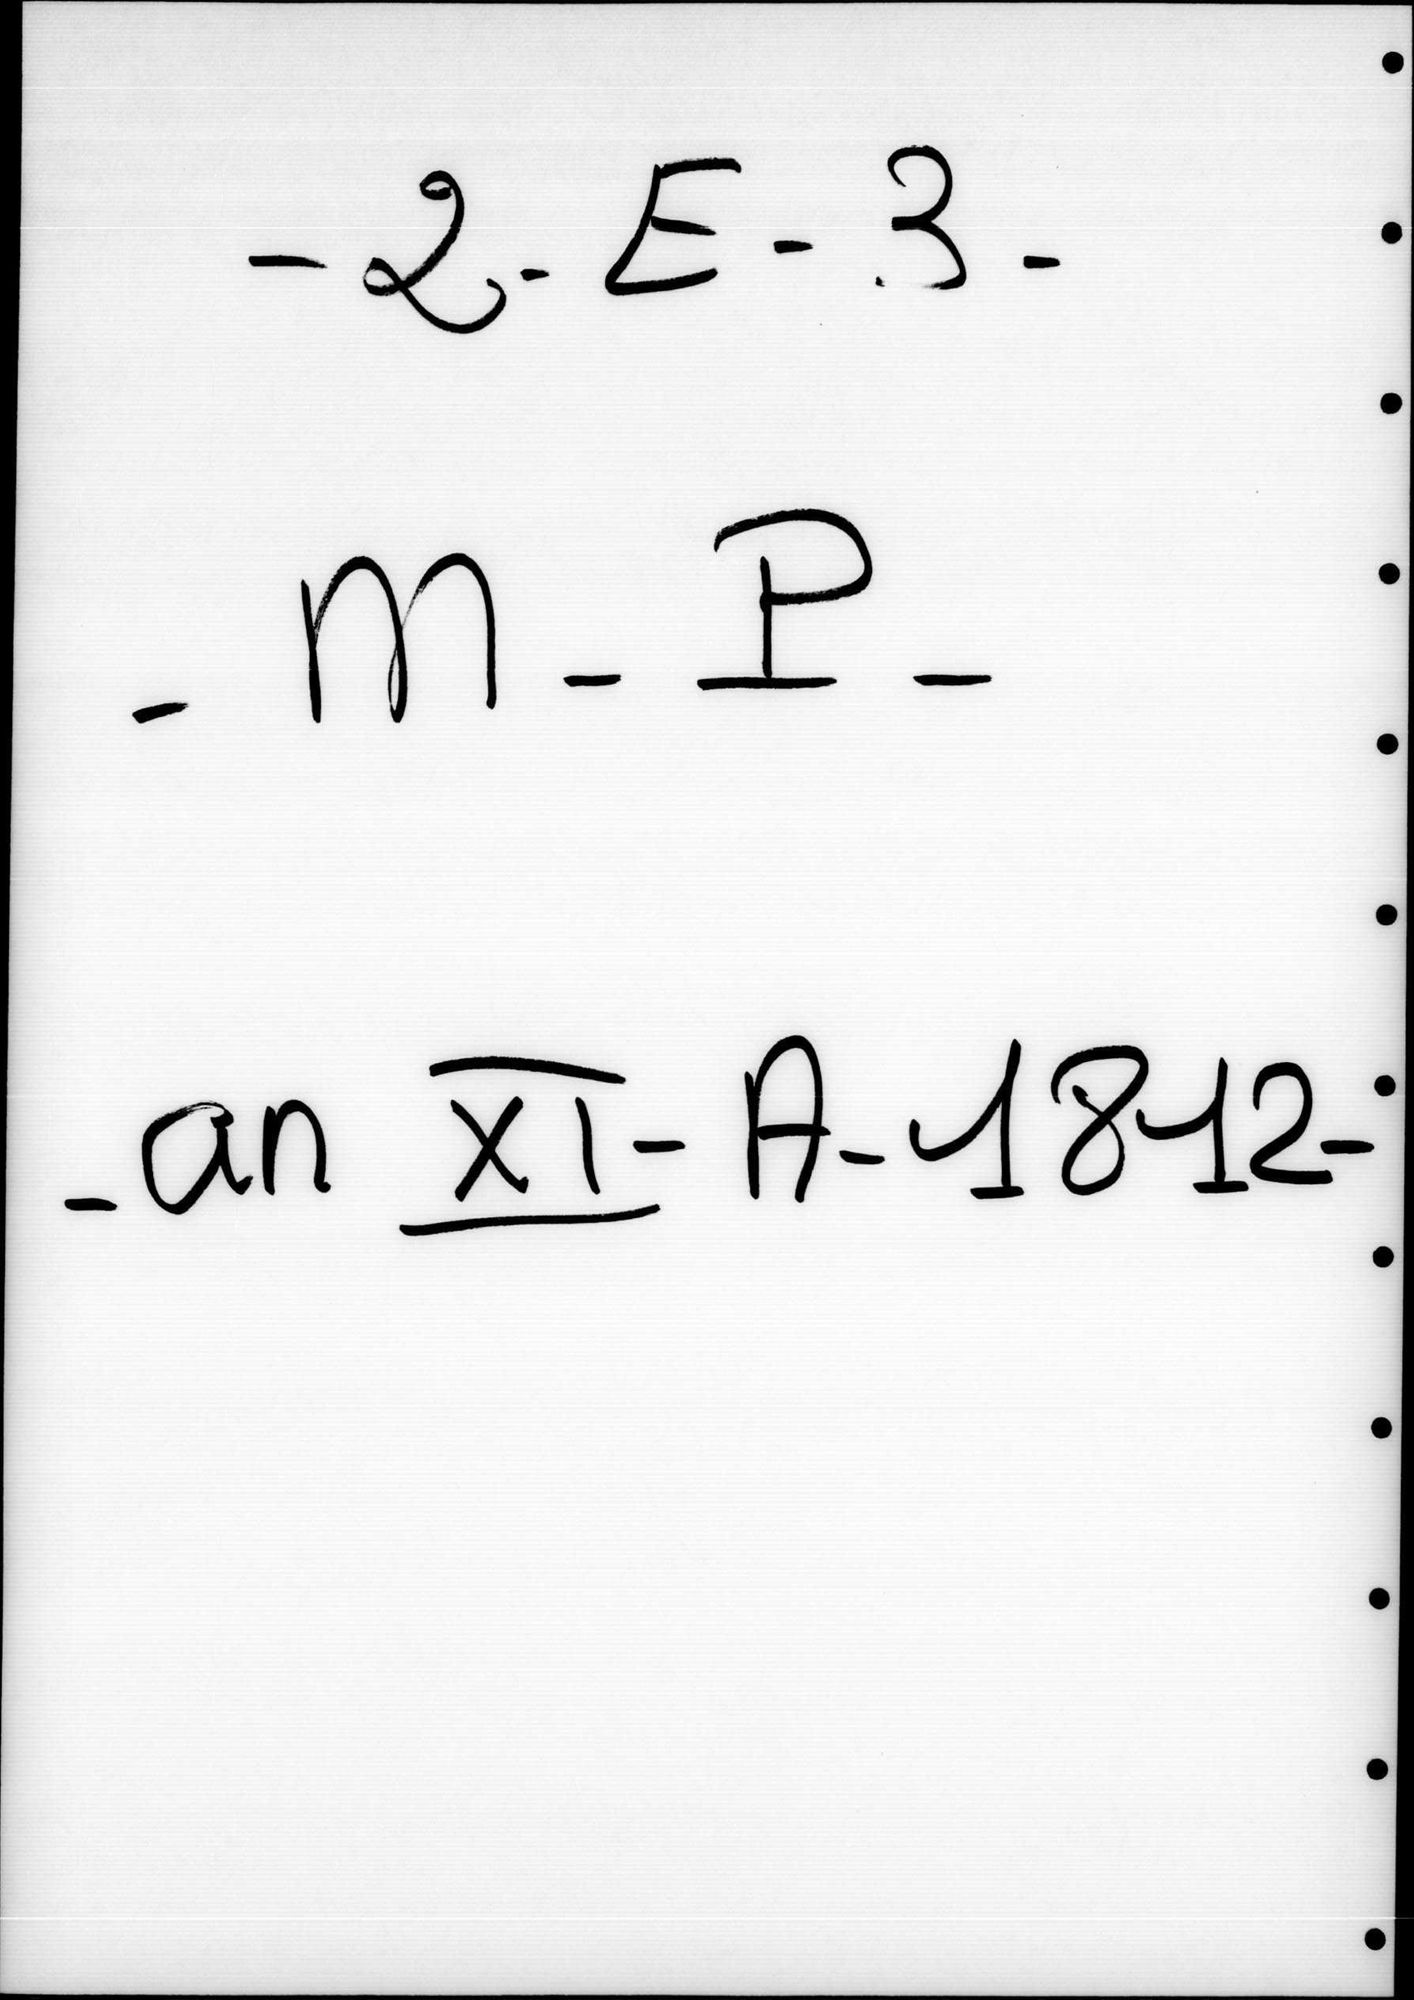 - 2 - E - 3 -
- M - P -
- an XI - A - 1812 -